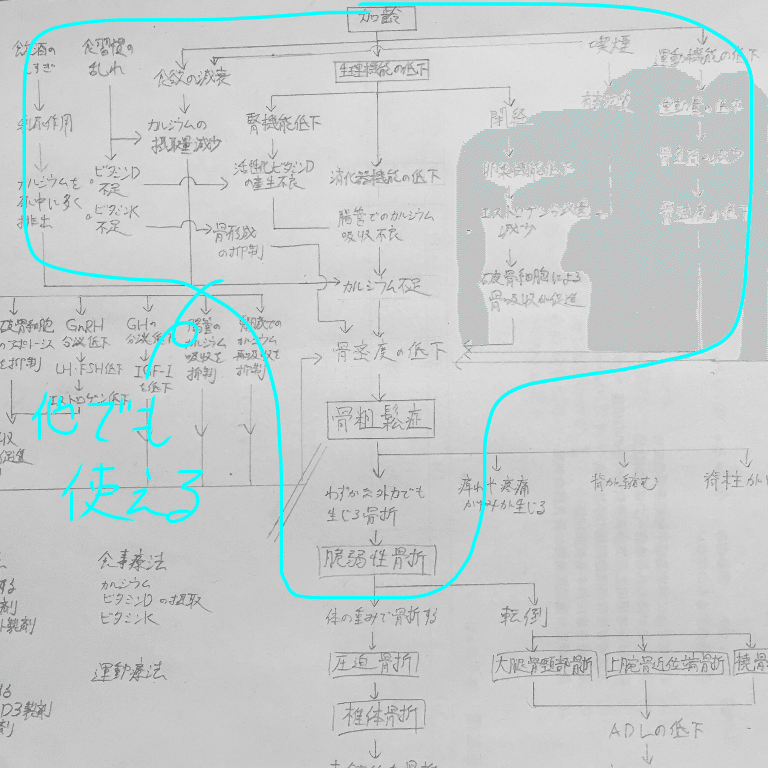 加齢
飲酒の
しすぎ
食習慣の
乱れ
食欲の減衰
生理機能の低下
喫煙
運動機能の低下
利尿作用
カルシウムの
摂取量減少
腎機能低下
閉経
カルシウムを
尿中に多く
排出
ビタミンD
不足
ビタミンK
不足
活性化ビタミンD
の産生不良
消化器機能の低下
卵巣機能低下
骨形成
の抑制
腸管でのカルシウム
吸収不良
エストロゲン分泌量
減少
カルシウム不足
破骨細胞による
骨吸収が促進
破骨細胞
のアポトーシス
を抑制
GnRH
分泌低下
LH・FSH低下
エストロゲン低下
GHの
分泌低下
IGF-I
を低下
腸管の
カルシウム
吸収を
抑制
カルシウム
再吸収を
抑制
骨密度の低下
他でも
使える
骨粗鬆症
わずかな外力でも
生じる骨折
痺れや疼痛
かゆみが生じる
背が縮む
脊柱が
脆弱性骨折
食事療法
カルシウム
ビタミンDの摂取
ビタミンK
体の重みで骨折する
転倒
運動療法
圧迫骨折
大腿骨頸部骨折
上腕骨近位端骨折
橈骨
D3製剤
椎体骨折
ADLの低下